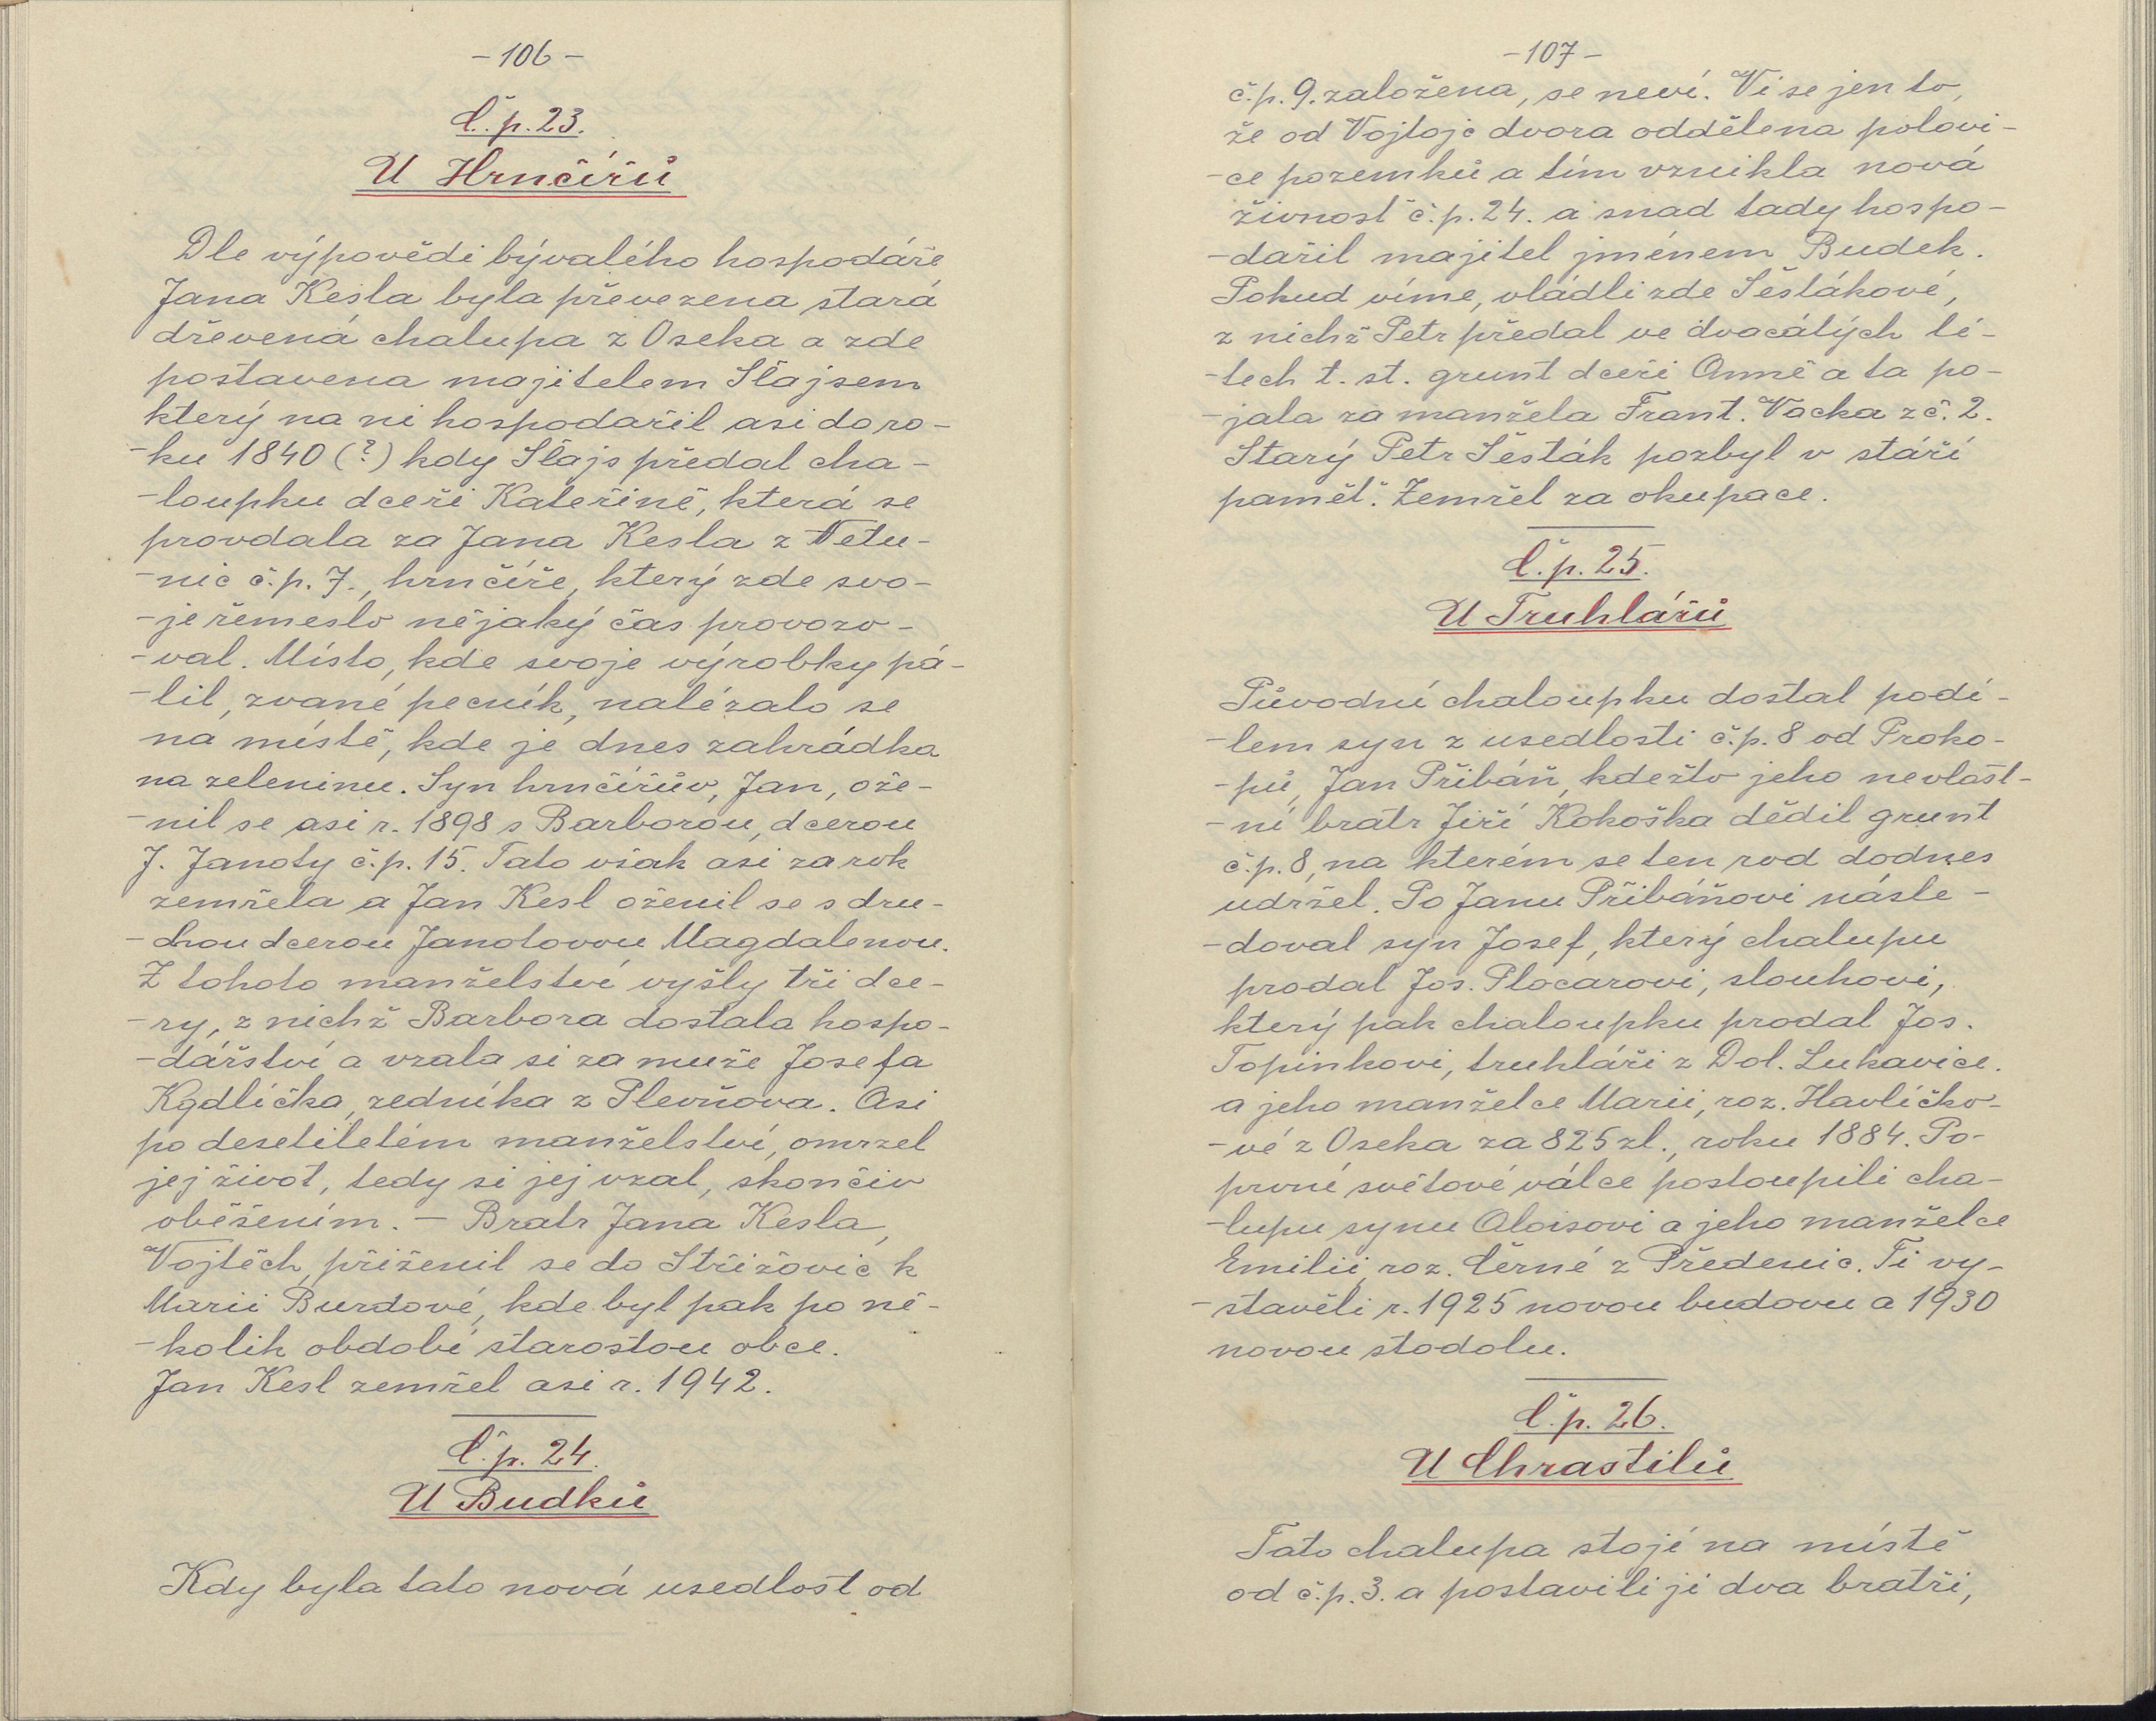 - 106 -
Č. p. 23.
U Hrnčířů
Dle výpovědi bývalého hospodáře
Jana Kesla byla převezena stará
dřevená chalupa z Oseka a zde
postavena majitelem Šlajsem
který na ni hospodařil asi do ro-
-ku 1840 (?) kdy Šlajs předal cha-
-loupku dceři Kateřině, která se
provdala za Jana Kesla z Netu-
-nic č. p. 7., hrnčíře, který zde svo-
-je řemeslo nějaký čas provozo-
-val. Místo, kde svoje výrobky pá-
-lil, zvané pecník, nalézalo se
na místě, kde je dnes zahrádka
na zeleninu. Syn hrnčířův, Jan, ože-
-nil se asi r. 1898 s Barborou, dcerou
J. Janoty č. p. 15. Tato však asi za rok
zemřela a Jan Kesl oženil se s dru-
-hou dcerou Janotovou Magdalenou.
Z tohoto manželství vyšly tři dce-
-ry, z nichž Barbora dostala hospo-
-dářství a vzala si za muže Josefa
Kydlíčka, zedníka z Plevňova. Asi
po desetiletém manželství, omrzel
jej život, tedy si jej vzal, skončiv
oběšením. - Bratr Jana Kesla,
Vojtěch, přiženil se do Střížovic k
Marii Burdové, kde byl pak po ně-
-kolik období starostou obce.
Jan Kesl zemřel asi r. 1942.
Č. p. 24.
U Budků
Kdy byla tato nová usedlost od
- 107 -
č. p. 9. založena, se neví. Ví se jen to,
že od Vojtojc dvora oddělena polovi-
-ce pozemků a tím vznikla nová
živnost č. p. 24. a snad tady hospo-
-dařil majitel jménem Budek.
Pokud víme, vládli zde Šestákové,
z nichž Petr předal ve dvacátých lé-
-tech t. st. grunt dceři Anně a ta po-
-jala za manžela Frant. Vacka z č. 2.
Starý Petr Šesták pozbyl v stáří
paměť. Zemřel za okupace.
Č. p. 25.
U Truhlářů
Původní chaloupku dostal podí-
-lem syn z usedlosti č. p. 8 od Proko-
-pů, Jan Přibáň, kdežto jeho nevlast-
-ní bratr Jiří Kokoška dědil grunt
č. p. 8, na kterém se ten rod dodnes
udržel. Po Janu Přibáňovi násle-
-doval syn Josef, který chalupu
prodal Jos. Plocarovi, slouhovi,
který pak chaloupku prodal Jos.
Topinkovi, truhláři z Dol. Lukavice.
a jeho manželce Marii, roz. Havlíčko-
-vé z Oseka za 825 zl., roku 1884. Po-
první světové válce postoupili cha-
-lupu synu Aloisovi a jeho manželce
Emilii, roz. Černé z Předenic. Ti vy-
-stavěli r. 1925 novou budovu a 1930
novou stodolu.
Č. p. 26.
U Chrastilů
Tato chalupa stojí na místě
od č. p. 3. a postavili ji dva bratři,